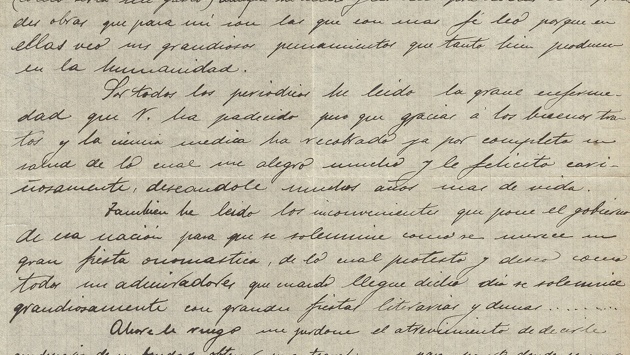 des obras que para mi son las que con mas fé leo porque en
ellas veo sus grandiosos pensamientos que tanto bien producen
en la humanidad.
Por todos los periodicos he leido la grave enferme-
dad que V. ha padecido pero que gracias á los buenos tra-
tos y la ciencia medica ha recobrado ya por completo su
salud de lo cual me alegro mucho y le felicito cari-
ñosamente, deseandole muchos años mas de vida.
Tambien he leido los inconvenientes que pone el gobierno
de esa nación para que se solemnice como se merece su
gran fiesta onomastica, de lo cual protesto y deseo como
todos sus admiradores que cuando llegue dicho dia se solemnice
grandiosamente con grandes fiestas literarias y demas..........
Ahora le ruego me perdone el atrevimiento de decirle